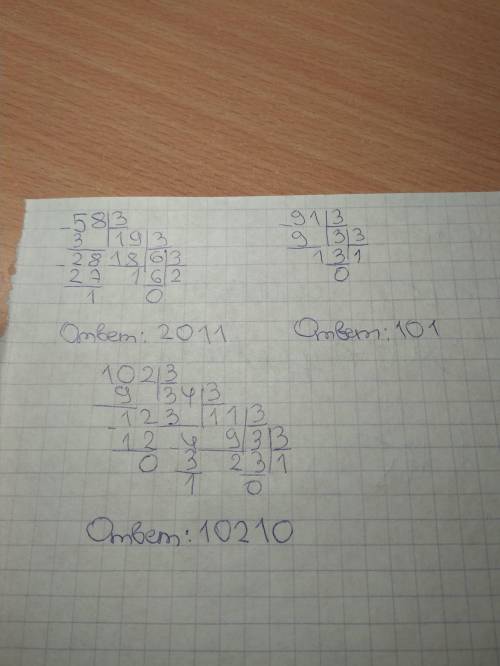 58|3
3 |19|3
28 18|6|3
27 1 6 2
1 0
Ответ: 2011
91|3
9 |3|3
1 3 1
0
Ответ: 101
102|3
9 34|3
12 3 |11|3
12 4 9 3|3
0 3 2 3 1
1 0
Ответ: 10210